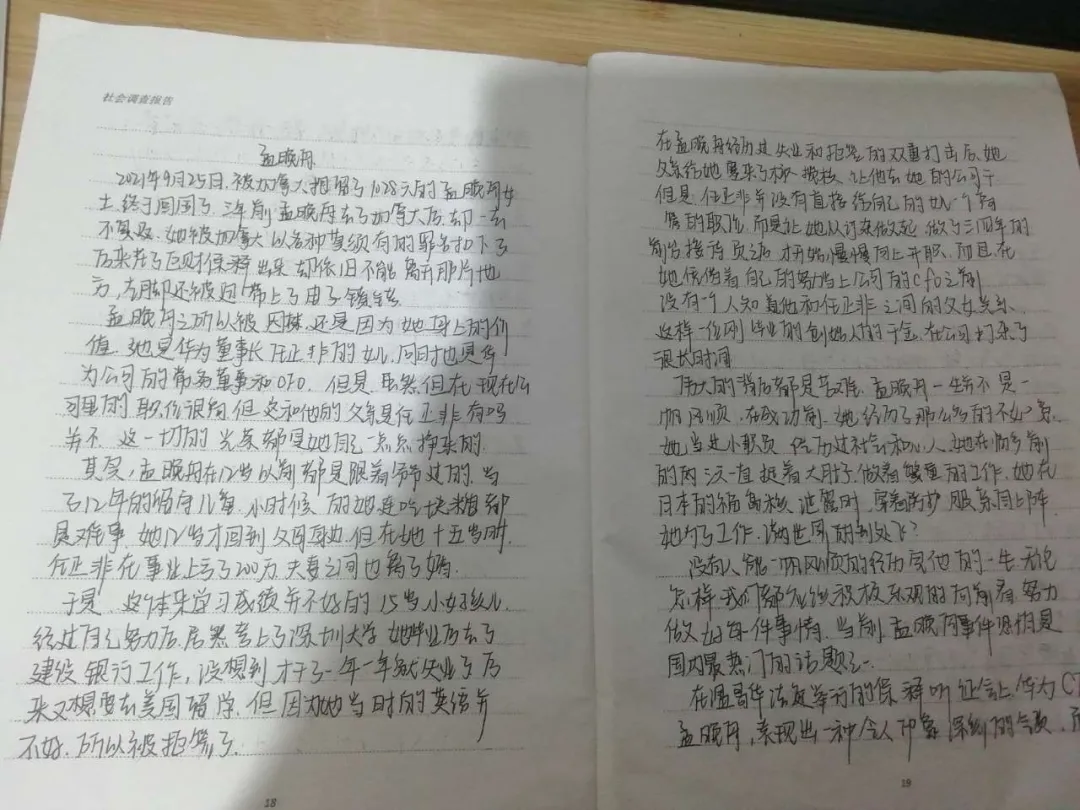 社会调查报告
孟晚舟
2021年9月25日,被加拿大拘留了1028天的孟晚舟女
士终于回国了,三年前孟晚舟去了加拿大后,却一去
不复返,她被加拿大以各种莫须有的罪名扣下了
后来在了巨财保释出来,却依旧不能离开那片地
方,左脚还被迫带上了电子镣铐
孟晚舟之所以被囚禁,还是因为她身上的价
值,她是华为董事长任正非的女儿,同时她也是华
为公司的常务董事和CFO.但是虽然但在现在公
司里的职位很高但这和他的父亲是任正非有吗
并不,这一切的光亲都是她自己一点点挣来的.
其实,孟晚舟在12岁以前都是跟着 过的,当
了12年的留守儿童,小时候的她连吃块糖都
是难事,她12岁才回到父母身边.但在她十五岁时,
任正非在事业上亏了200万,夫妻之间也离了婚.
于是,这个本来学习成绩并不好的15岁小女孩儿,
经过自己努力后,居然考上了深圳大学,她毕业后去了
建设银行工作,没想到才干了一年一年就失业了后
来又想要去美国留学,但因为她当时的英语并
不好,所以被拒签了.
18
在孟晚舟经历过失业和拒签的双重打击后,她
父亲给她 来了 橄榄枝,让他去她的公司干
但是,任正非并没有直接给自己的女儿一个高
等的职位,而是让她从打杂做起,做了三四年的
前台接待员之后,才开始慢慢向上升职,而且在
她依借着自己的努力当上公司的cfo之前
没有一个人知道他和任正非之间的父女关系,
这样一位刚毕业的创始人的千金,在公司打杂了
很长时间
伟大的背后都是苦难,孟晚舟一生并不是一
帆风顺,在成功前,她经历了那么多的不如意,
她当过小职员,经历过社会和 人,她在临产前
的两三天一直挺着大肚子,做着繁重的工作,她在
日本的福岛核泄露时,穿着防护服亲自上阵,
她为了工作,满世界的到处飞?
没有人能一帆风顺的经历完他的一生,无论
怎样,我们都应该积极乐观的向前看,努力
做好每件事情,当前,孟晚舟事件恐怕是
国内最热门的话题之一.
在温哥华法庭举行的保释听证会上,华为C
孟晚舟,表现出一种令人印象深刻的气质,
19